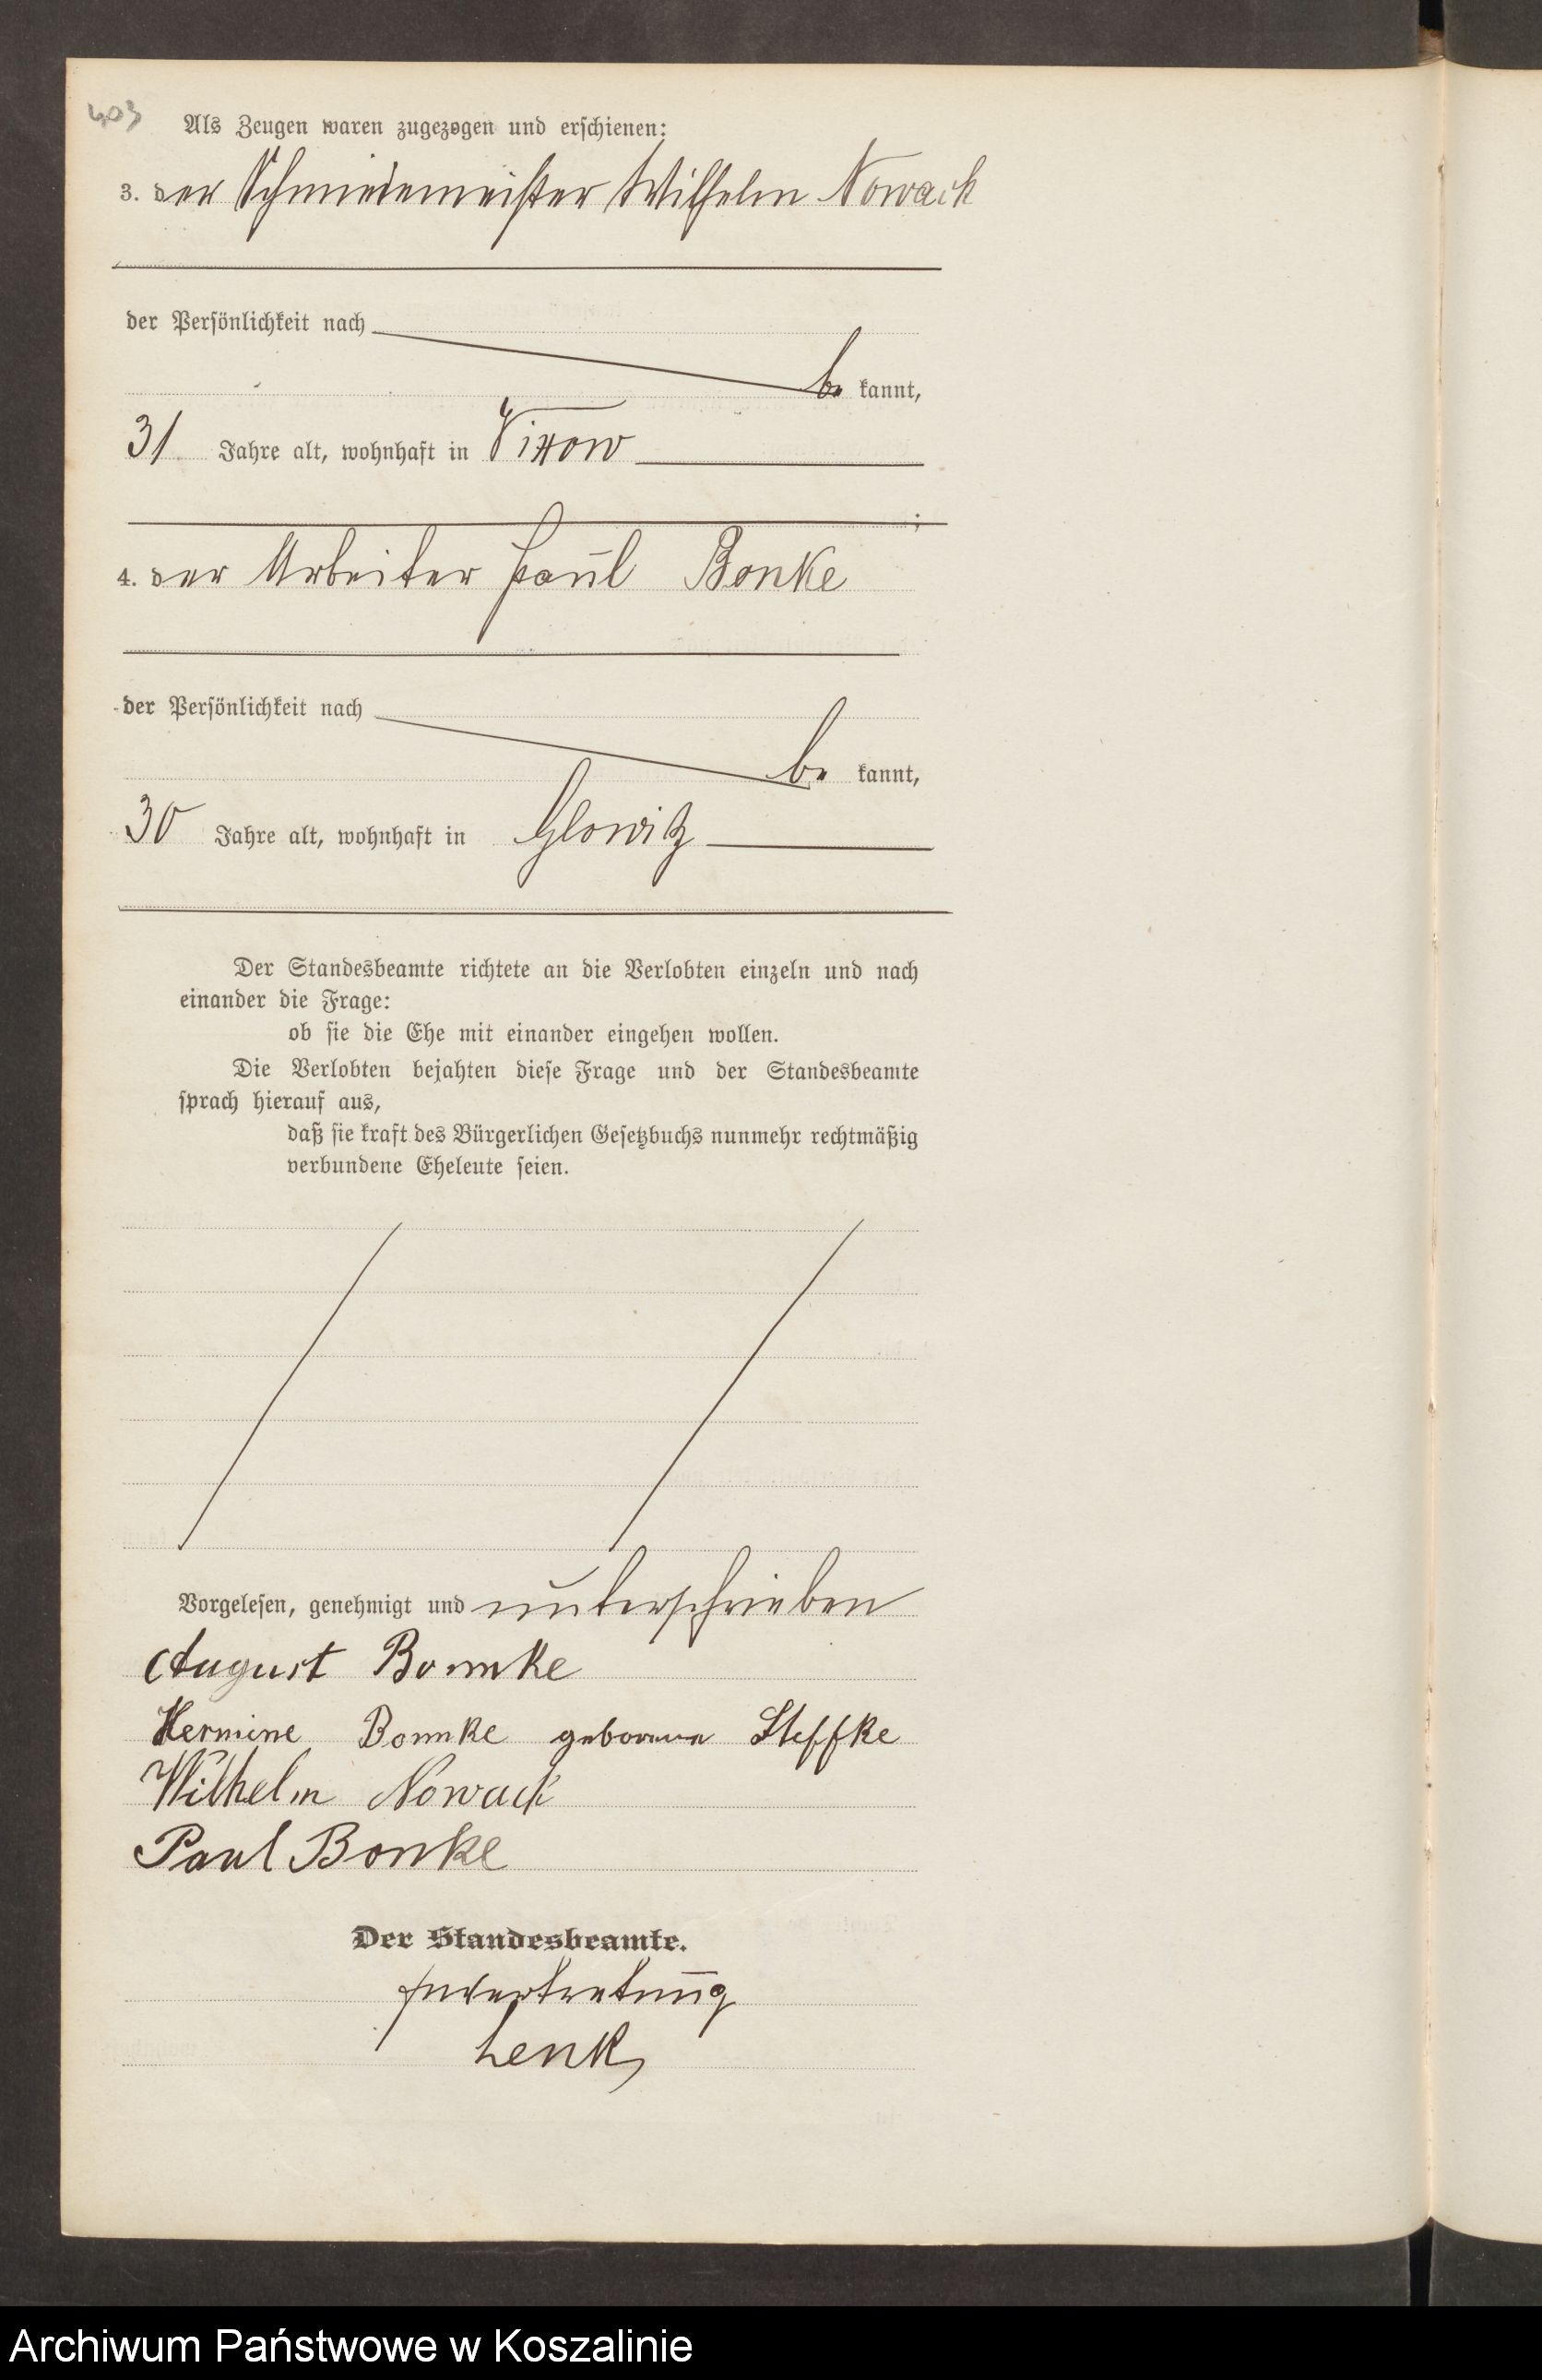 403
Als Zeugen waren zugezogen und erschienen:
3. der Schmiedemeister Wilhelm Nowack
der Persönlichkeit nach
be kannt,
31 Jahre alt, wohnhaft in Vixow
;
4. der Arbeiter Paul Bonke
der Persönlichkeit nach
be kannt,
30 Jahre alt, wohnhaft in Glowitz
Der Standesbeamte richtete an die Verlobten einzeln und nach
einander die Frage:
ob sie die Ehe mit einander eingehen wollen.
Die Verlobten bejahten diese Frage und der Standesbeamte
sprach hierauf aus,
daß sie kraft des Bürgerlichen Gesetzbuchs nunmehr rechtmäßig
verbundene Eheleute seien.
Vorgelesen, genehmigt und unterschrieben
August Bonnke
Hermine Bonnke geborene Steffke
Wilhelm Nowack
Paul Bonke
Der Standesbeamte.
In Vertretung
Lenk
Archiwum Państwowe w Koszalinie